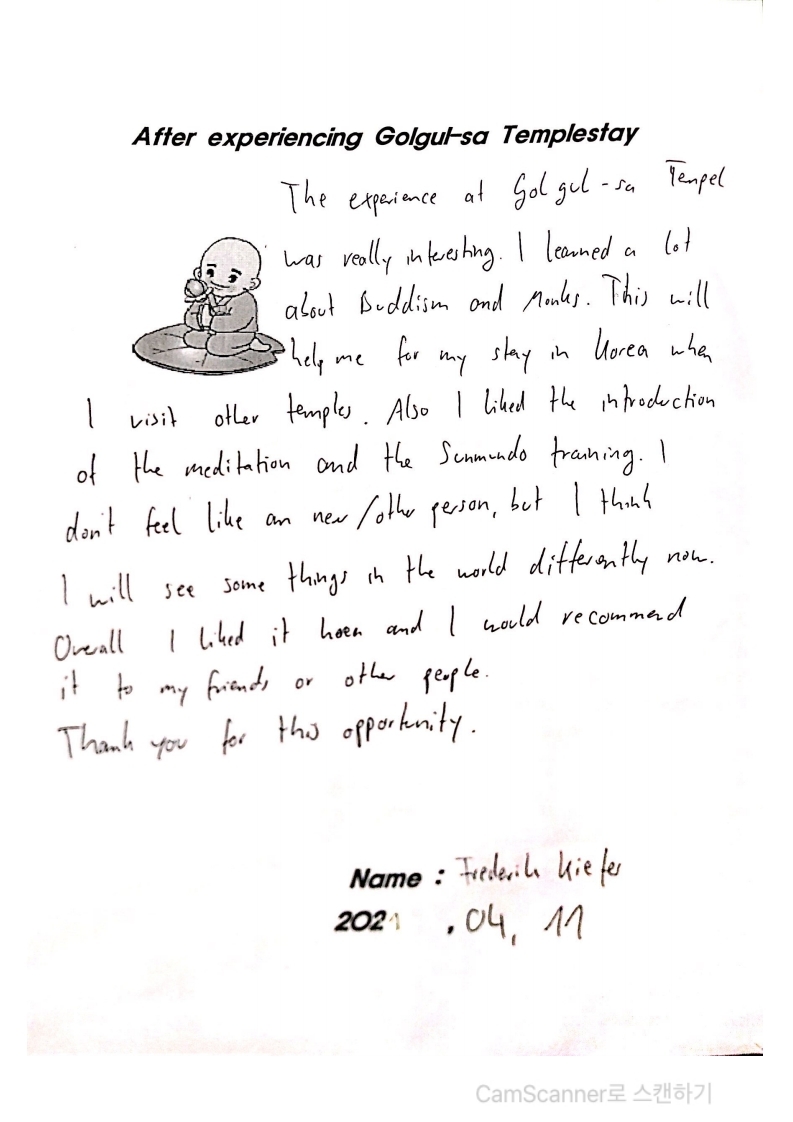 After experiencing Golgul-sa Templestay
The experience at Golgul-sa Tempel
was really interesting. I learned a lot
about Buddism and Monks. This will
help me for my stay in Korea when
I visit other temples. Also I liked the introduction
of the meditation and the Sunmundo training. I
don't feel like an new/other person, but I think
I will see some things in the world differently now.
Overall I liked it and I would recommend
it to my friends or other people.
Thank you for this opportunity.
Name : Frederik Kiefer
2021 .04, 11
CamScanner로 스캔하기